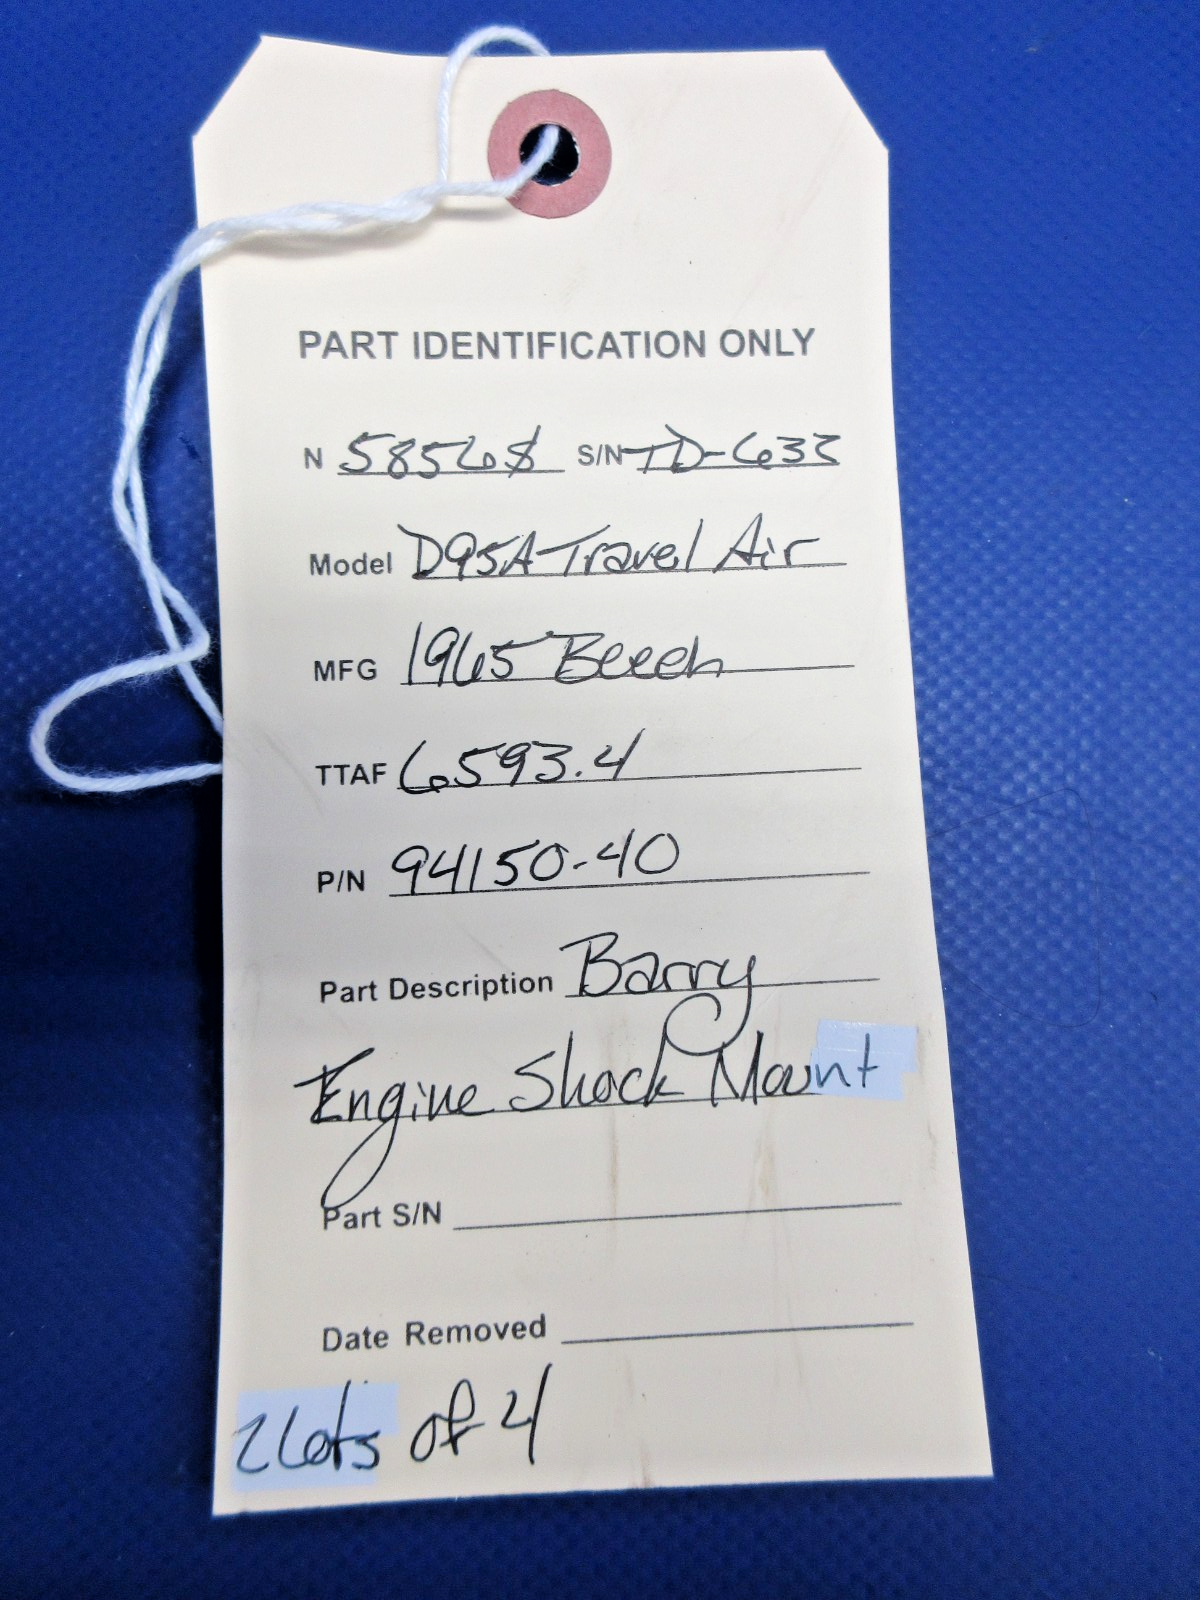 PART IDENTIFICATION ONLY
N 5856S S/N TD-633
Model D95A Travel Air
MFG 1965 Beech
TTAF 6593.4
P/N 94150-40
Part Description Barry
Engine Shock Mount
Part S/N
Date Removed
2 Lots of 4